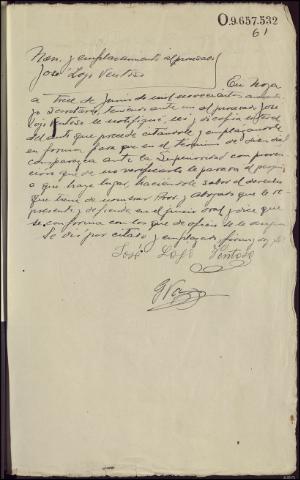 O.9.657.532
61
Non. y emplazamiento al procesado
José Lojo Ventoso
En Noya
a trece de Junio de mil novecientos
yo Secretario teniendo ante mi al procesado José
Lojo Ventoso le notifiqué, leí y dí copia literal
del auto que precede citandole y emplazandole
en forma para que en el termino de diez dias
comparezca ante la Superioridad con preven
ción que de no verificarlo le parará el perjuicio
a que haya lugar, haciendole saber el derecho
que tiene de nombrar Pror. y abogado que le re
presente y defienda en el juicio oral y dice que
se conforma con los que de oficio se le
Se dió por citado y emplazado firma, doy fé
José Lojo Ventoso